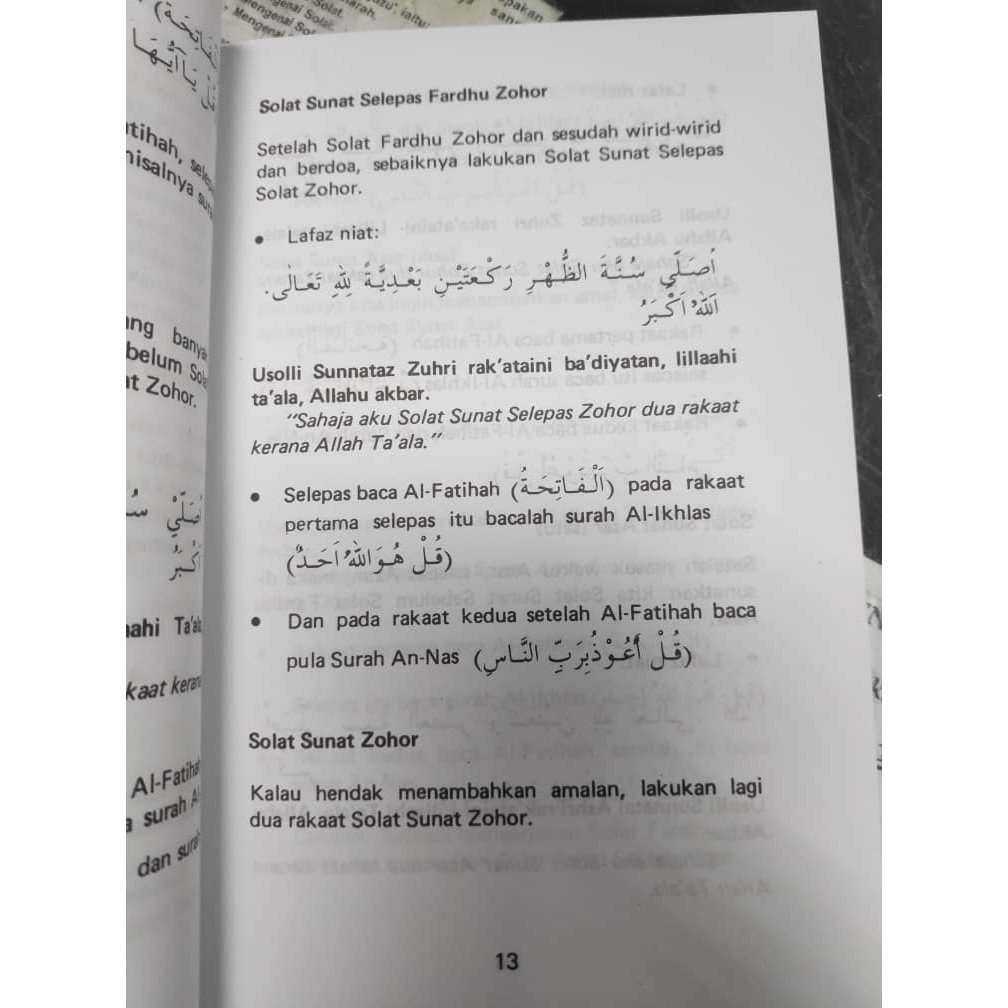 Solat Sunat Selepas Fardhu Zohor
Setelah Solat Fardhu Zohor dan sesudah wirid-wirid
dan berdoa, sebaiknya lakukan Solat Sunat Selepas
Solat Zohor.
• Lafaz niat:
اُصَلِّي سُنَّةَ الظُّهْرِ رَكْعَتَيْنِ بَعْدِيَّةً لِلّٰهِ تَعَالٰى.
اَللّٰهُ اَكْبَرُ
Uṣolli Sunnataz Zuhri rak'ataini ba'diyatan, lillaahi
ta'ala, Allahu akbar.
"Sahaja aku Solat Sunat Selepas Zohor dua rakaat
kerana Allah Ta'ala."
• Selepas baca Al-Fatihah (اَلْفَاتِحَةُ) pada rakaat
pertama selepas itu bacalah surah Al-Ikhlas
(قُلْ هُوَ اللّٰهُ اَحَدٌ)
• Dan pada rakaat kedua setelah Al-Fatihah baca
pula Surah An-Nas (قُلْ أَعُوْذُبِرَبِّ النَّاسِ)
Solat Sunat Zohor
Kalau hendak menambahkan amalan, lakukan lagi
dua rakaat Solat Sunat Zohor.
13